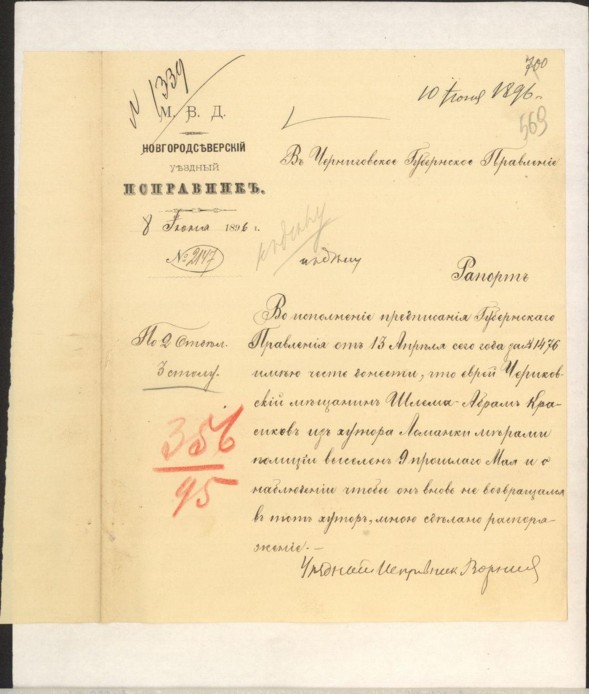 N 1339
700
10 Іюня 1896 г.
569
М. В. Д.
НОВГОРОДСѢВЕРСКІЙ
УѢЗДНЫЙ
ИСПРАВНИКЪ.
8 Іюня 1896 г.
№ 2147
Въ Черниговское Губернское Правленіе
къ дѣлу
къ дѣлу
Рапортъ
По 2 Отдѣл.
3 столу.
356
95
Во исполненіе предписанія Губернскаго
Правленія отъ 13 Апрѣля сего года за № 1476
имѣю честь донести, что еврей Чериков-
скій мѣщанинъ Шлема-Абрамъ Кра-
сиковъ изъ хутора Ломанки мѣрами
полиціи выселенъ 9 прошлаго Мая и о
наблюденіи чтобы онъ вновь не возвращался
въ тотъ хуторъ, мною сдѣлано распоря-
женіе.—
Уѣздный Исправникъ